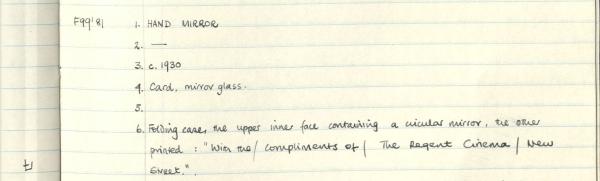 F99'81 1. HAND MIRROR
2. —
3. c. 1930
4. Card, mirror glass.
5.
6. Folding case, the upper inner face containing a circular mirror, the other
printed : "With the / compliments of / The Regent Cinema / New
Street.".